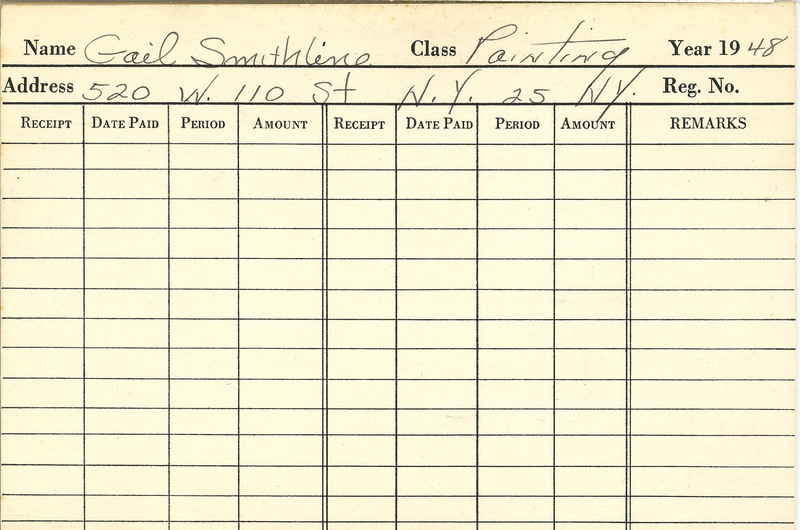 Name Gail Smithline Class Painting Year 1948
Address 520 W. 110 St N.Y. 25 NY. Reg. No.
RECEIPT DATE PAID PERIOD AMOUNT RECEIPT DATE PAID PERIOD AMOUNT REMARKS